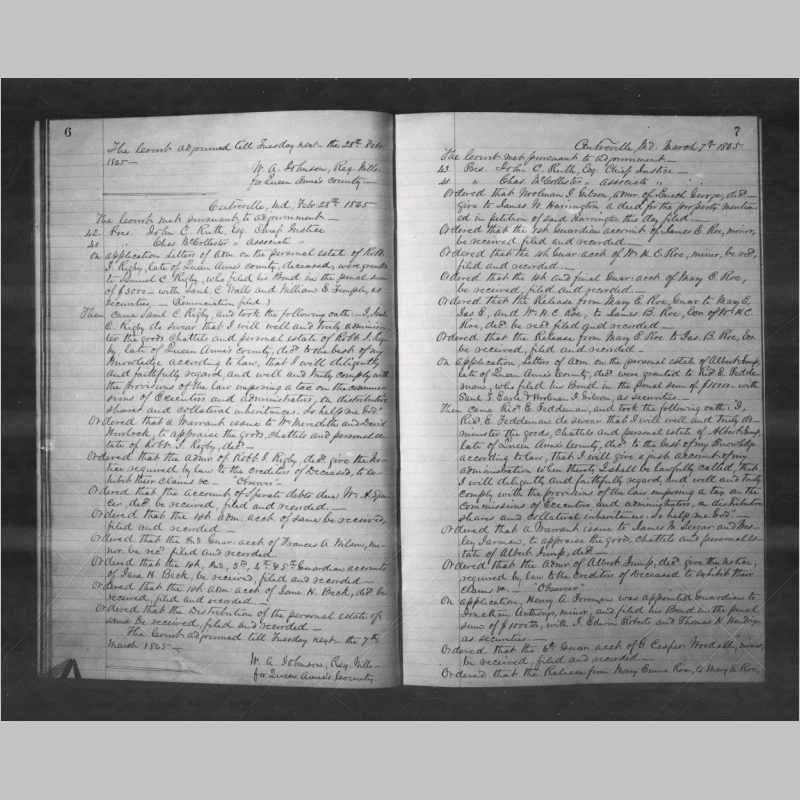 6
The Court adjourned till Tuesday next the 28th Feb.
1865—
W. A. Johnson, Reg. Wills
for Queen Anne's county—
Centreville, Md. Feb. 28th 1865
The Court met pursuant to adjournment—
42 Pres. John C. Ruth, Esq. Chief Justice
40 " Chas McCollister " Associate "
On application Letters of adm on the personal estate of Robt
I. Rigby, late of Queen Anns county, deceased, were granted
to Samuel C. Rigby, who filed his Bond in the penal sum
of $3000— with Saml C. Wall and William E. Temple, as
securities— (Renunciation filed)
Then came Saml C. Rigby, and took the following oath:
C. Rigby do swear that I will well and truly adminis-
ter the goods chattels and personal estate of Robt I. Rig-
by late of Queen Anns county, decd to the best of my
knowledge according to law, that I will diligently
and faithfully regard, and well and truly comply with
the provisions of the law imposing a tax on the commis-
sions of Executors and administrators, on distributive
shares and collateral inheritances. So help me God"
Ordered that a Warrant issue to Wm Meredith and David
to appraise the goods, chattels and personal es-
tate of Robt I. Rigby, decd—
Ordered that the admr. of Robt I. Rigby, decd give the No-
tice required by law to the creditors of Deceased, to ex-
hibit their claims &c— "Observer"
Ordered that the account of Sperate debts due Wm H. Spen-
cer decd be received, filed and recorded.—
Ordered that the adm. acct of same be received,
filed and recorded—
Ordered that the 2nd Guar. acct of Frances A. Wilson, mi-
nor be recd filed and recorded—
Ordered that the 1st, 2nd, 3d, 4th & 5th Guardian accounts
of H. Beck, be received, filed and recorded—
Ordered that the 10th adm acct of H. Beck, decd be
received, filed and recorded—
Ordered that the Distribution of the personal estate of
same be received, filed and recorded—
The Court adjourned till Tuesday next— the 7th
March 1865—
W. A. Johnson, Reg. Wills—
for Queen Anne's County
7
Centreville, Md. March 7th 1865
The Court met pursuant to adjournment—
43 Pres. John C. Ruth, Esq. Chief Justice—
41 " Chas. McCollister " Associate "
Ordered that Woolman J. Gibson, admr. of Enoch George, decd
give to James W. Harrington a deed for the property mention-
ed in petition of said Harrington this day filed—
Ordered that the Guardian account of James E. Roe, minor,
be received filed and recorded—
Ordered that the Guar. acct of Wm H. C. Roe, minor, be recd,
filed and recorded—
Ordered that the 4th and final Guar. acct of Mary E. Roe,
be received, filed and recorded—
Ordered that the Release from Mary E. Roe, Guar to Mary E,
Jas E, and Wm H. C. Roe, to James B. Roe, Exr. of Wm H. C.
Roe, decd be recd filed and recorded—
Ordered that the Release from Mary E. Roe to Jas. B. Roe, Exr
be received, filed and recorded—
On application, Letters of adm on the personal estate of Albert Jump,
late of Queen Anns county, decd were granted to Richd E. Fedde-
man, who filed his Bond in the penal sum of with
Saml T. Earle & Woolman J. Gibson, as securities—
Then came Richd E. Feddeman, and took the following oath: "I,
Richd E. Feddeman do swear that I will well and truly ad-
minister the goods, chattels and personal estate of Albert Jump,
late of Queen Anns County, decd to the best of my knowledge
according to law, that I will give a just account of my
administration when thereto I shall be lawfully called, that
I will diligently and faithfully regard, and well and truly
comply with the provisions of the law imposing a tax on the
commissions of Executors and administrators, on distributive
shares and collateral inheritances. So help me God"—
Ordered that a Warrant issue to James W. and Wes-
ley Jarman, to appraise the goods, chattels and personal es-
tate of Albert Jump, decd—
Ordered that the admr. of Albert Jump, decd give the notice,
required by law to the creditors of Deceased to exhibit their
claims &c— "Observer"
On application, Henry C. Foreman was appointed Guardian to
Jonathan Anthony, minor, and filed his Bond in the penal
sum of with J. Edwin Roberts and Thomas H.
as securities—
Ordered that the 6th Guar. acct of C. Casper Woodall, minor,
be received, filed and recorded—
Ordered that the Release from Mary Emma Roe, to Mary E. Roe,